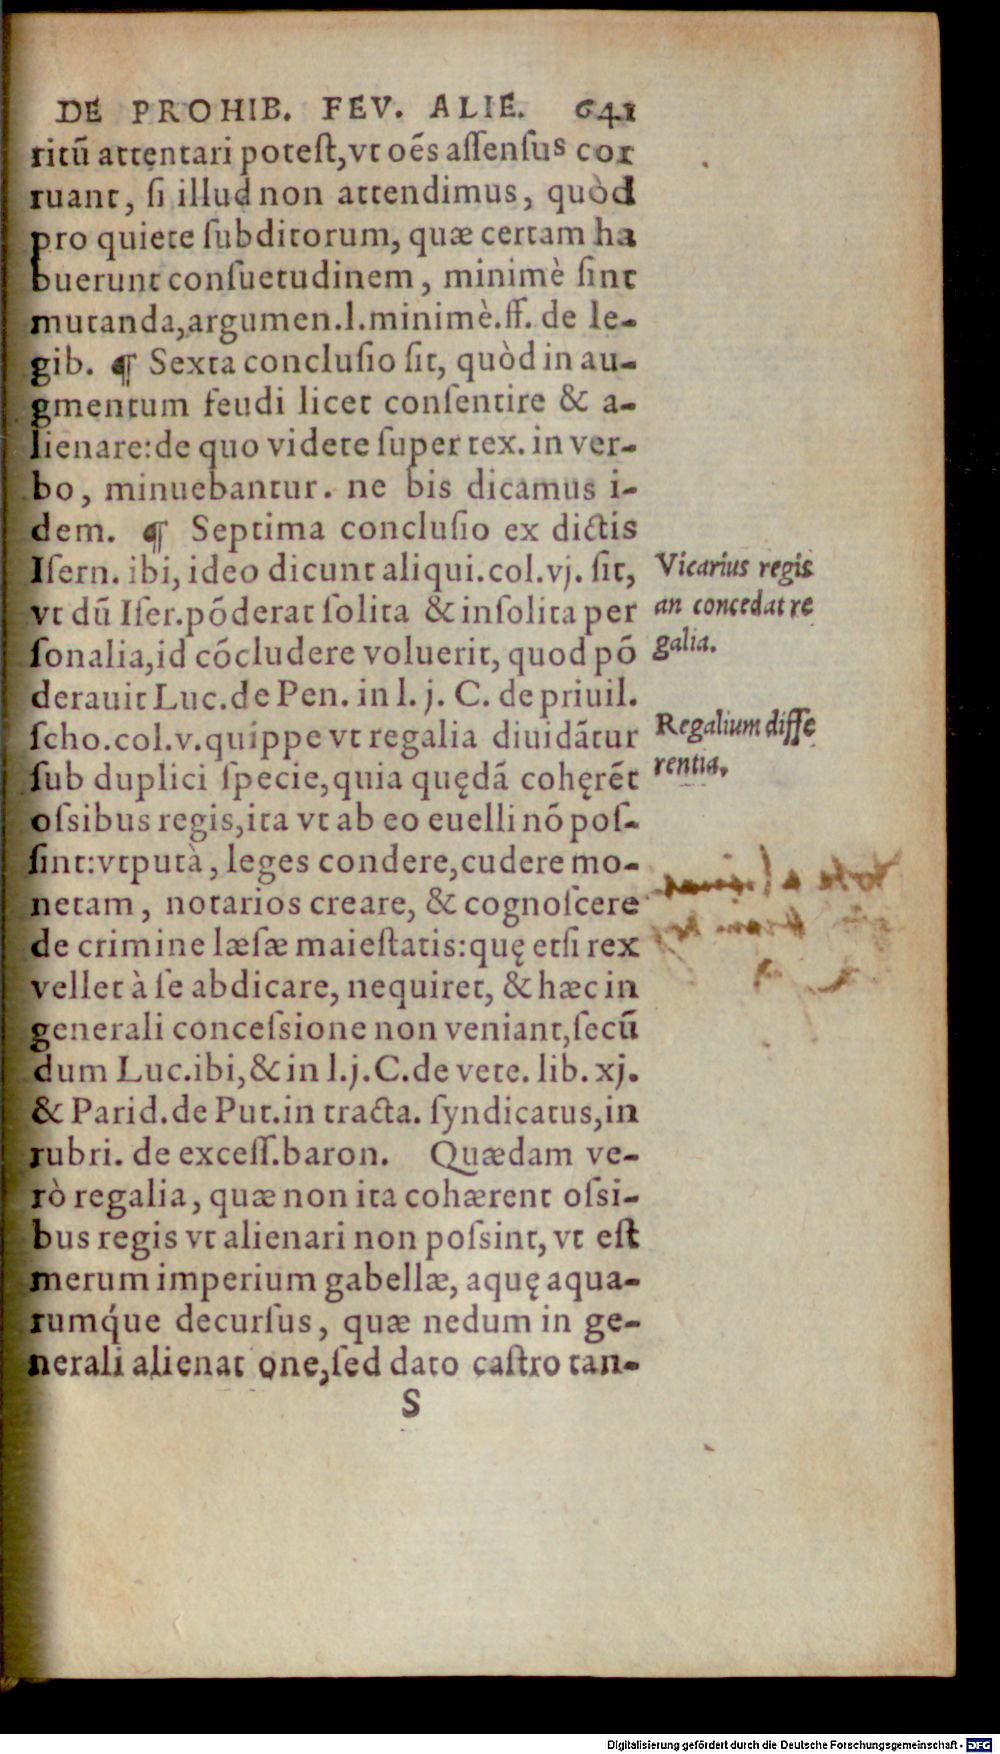 DE PROHIB. FEV. ALIE. 641
ritū attentari poteſt,vt oēs aſſenſus cor
ruant, ſi illud non attendimus, quòd
pro quiete ſubditorum, quæ certam ha
buerunt conſuetudinem, minimè ſint
mutanda,argumen.l.minimè.ff. de le-
gib. ¶ Sexta concluſio ſit, quòd in au-
gmentum feudi licet conſentire & a-
lienare:de quo videte ſuper tex. in ver-
bo, minuebantur. ne bis dicamus i-
dem. ¶ Septima concluſio ex dictis
Iſern. ibi, ideo dicunt aliqui.col.vj. ſit,
vt dū Iſer.pōderat ſolita & inſolita per
ſonalia,id cōcludere voluerit, quod pō
derauit Luc.de Pen. in l. j. C. de priuil.
ſcho.col.v.quippe vt regalia diuidātur
ſub duplici ſpecie,quia quędā cohęrēt
oſsibus regis,ita vt ab eo euelli nō poſ-
ſint:vtputà, leges condere,cudere mo-
netam, notarios creare, & cognoſcere
de crimine læſæ maieſtatis:quę etſi rex
vellet à ſe abdicare, nequiret, & hæc in
generali conceſsione non veniant,ſecū
dum Luc.ibi,& in l.j.C.de vete. lib. xj.
& Parid.de Put.in tracta. ſyndicatus,in
rubri. de exceſſ.baron. Quædam ve-
rò regalia, quæ non ita cohærent oſsi-
bus regis vt alienari non poſsint, vt eſt
merum imperium gabellæ, aquę aqua-
rumq́ue decurſus, quæ nedum in ge-
nerali alienat one,ſed dato caſtro tan-
S
Vicarius regis
an concedat re
galia.
Regalium diffe
rentia.
Digitalisierung gefördert durch die Deutsche Forschungsgemeinschaft - DFG